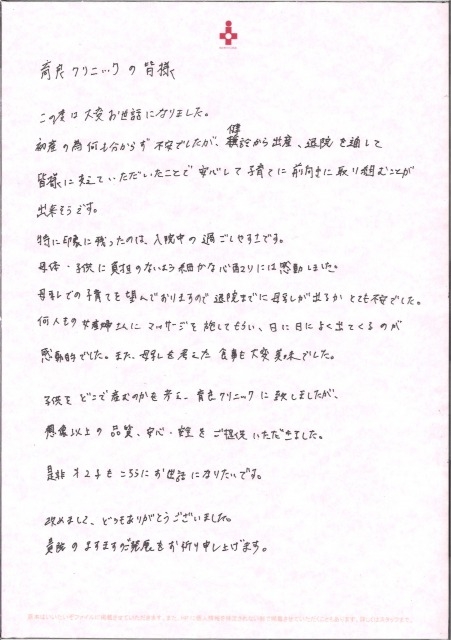 育良クリニックの皆様
この度は大変お世話になりました。
初産の為何も分からず不安でしたが、健診から出産、退院を通して
皆様に支えていただいたことで安心して子育てに前向きに取り組むことが
出来そうです。
特に印象に残ったのは、入院中の過ごしやすさです。
母体・子供に負担のないよう細かな心配りには感動しました。
母乳での子育てを望んでおりますので退院までに母乳が出るかとても不安でした。
何人もの助産婦さんにマッサージを施してもらい、日に日によく出てくるのが
感動的でした。また、母乳を考えた食事も大変美味でした。
子供をどこで産むのかを考え、育良クリニックに致しましたが、
想像以上の品質、安心・安全をご提供いただきました。
是非オ2子もこちらにお世話になりたいです。
改めまして、どうもありがとうございました。
貴院のますますご発展をお祈り申し上げます。